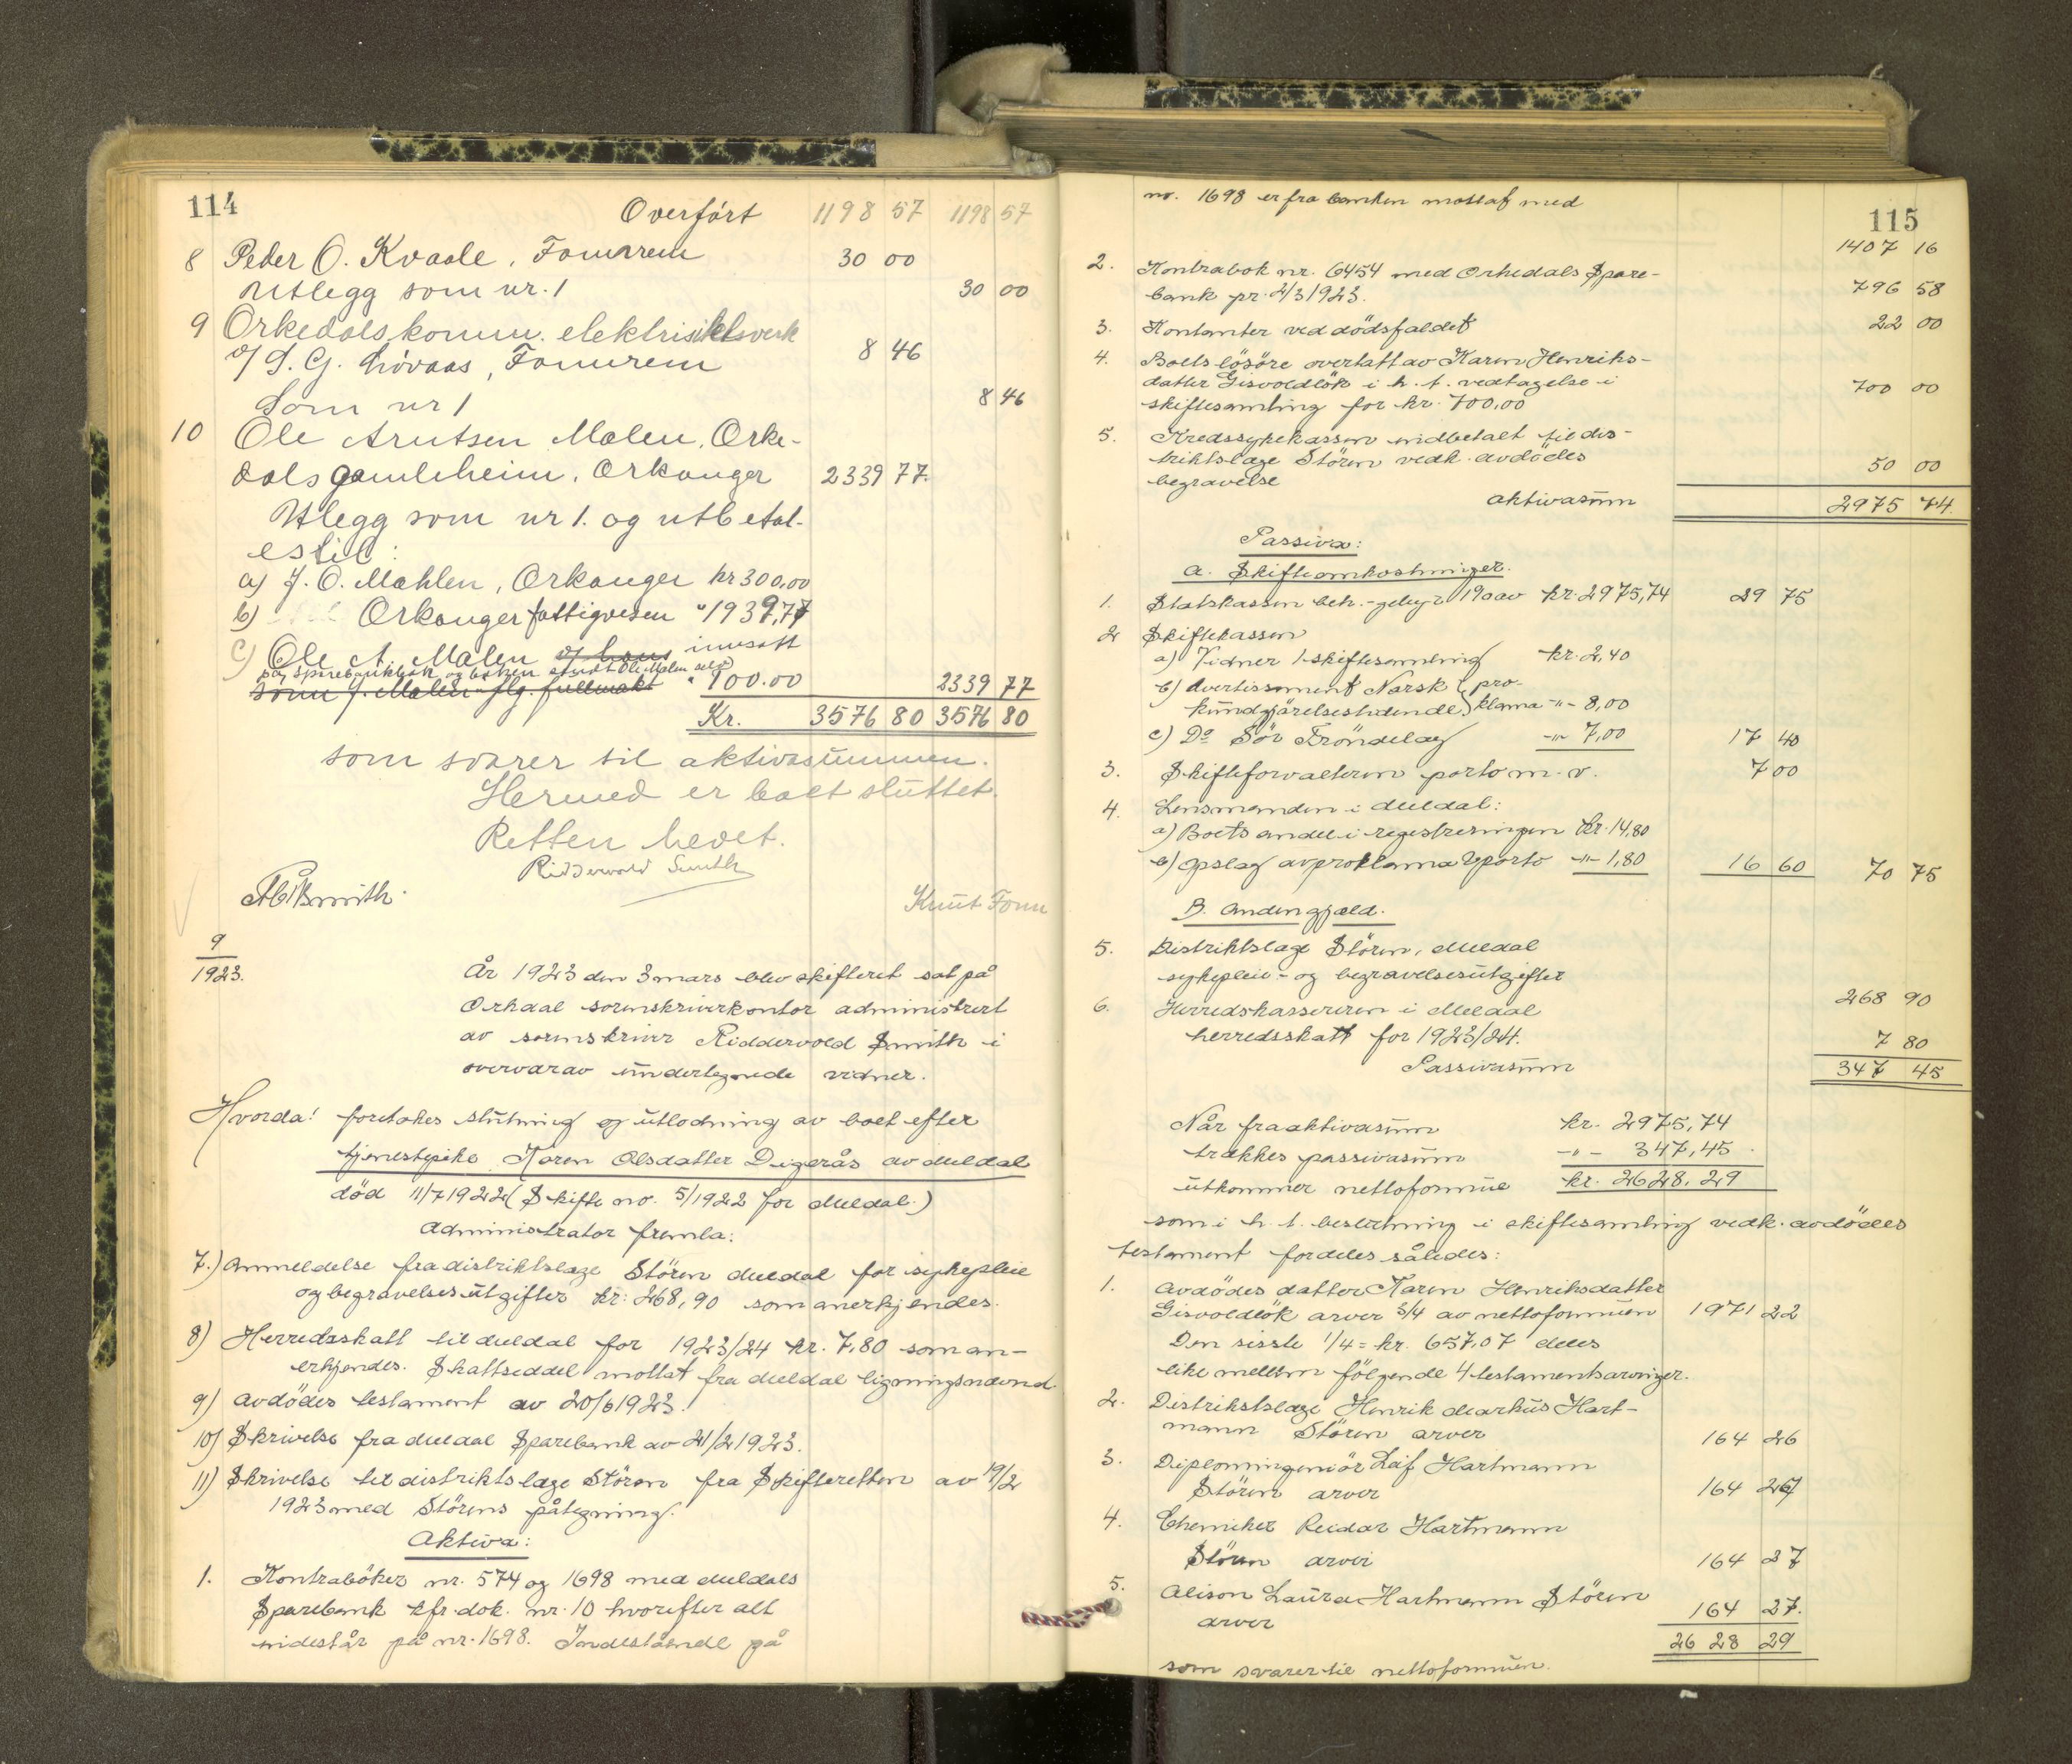 114
Overført 1198 57 1198 57
8 Peder O. Kvaale, Fannrem 30 00
Utlegg som nr. 1 30 00
9 Orkedals komm. elektrisitetsverk
v/ S. G. Livaas, Fannrem 8 46
Som nr 1 8 46
10 Ole Arntsen Malen, Orke-
dals gamleheim, Orkanger 2339 77.
Utlegg som nr 1. og utbetal-
es til:
a) J. O. Mahlen, Orkanger kr 300,00
b) Orkanger fattigvesen " 1939,77
c) Ole A. Malen og hans innsatt
på sparebankbok og boken sendt Ole Malen selv
sønn J. Malen flg. fullmakt " 100.00 2339 77
Kr. 3576 80 3576 80
som svarer til aktivasummen.
Hermed er boet sluttet.
Retten hevet.
Ridderwold Smith
Smith. Knut Fonn
9
1923.
År 1923 den 3 mars blev skifteret sat på
Orkdal sorenskriverkontor administrert
av sorenskriver Riddervold Smith i
overvær av undertegnede vidner.
Hvorda! foretokes slutning og utlodning av boet efter
tjenestepike Karen Olsdatter Digerås av Meldal
död 11/7 1922 (Skifte no. 5/1922 for Meldal.)
Administrator fremla:
7.) Anmeldelse fra distriktslæge Stören Meldal for sykepleie
og begravelsesutgifter kr: 268,90 som anerkjendes.
8) Herredsskatt til Meldal for 1923/24 kr. 7,80 som an-
erkjendes. Skattseddel mottat fra Meldal ligningsnevnd.
9) Avdödes testament av 20/6 1923.
10) Skrivelse fra Meldal Sparebank av 21/2 1923.
11) Skrivelse til distriktslæge Stören fra Skifteretten av 19/2
1923 med Störens påtegning.
Aktiva:
1. Kontraböker nr. 574 og 1698 med Meldals
Sparebank kfr. dok. nr. 10 hvorefter alt
indestår på nr. 1698. Indestående på
no. 1698 er fra banken mottat med
115
1407 16
2. Kontrabok nr. 6454 med Orkedals Spare-
bank pr. 2/3 1923. 796 58
3. Kontanter ved dödsfaldet 22 00
4. Boets lösöre overtatt av Karen Henriks-
datter Gisvoldlök i h. t. vedtagelse i
skiftesamling for kr. 700,00 700 00
5. Kredssykekassen indbetalt til dis-
triktslæge Stören vedk. avdödes
begravelse 50 00
Aktivasum 2975 74.
Passiva:
a. Skifteomkostninger.
1. Statskassen beh.-gebyr 1% av kr. 2975,74 29 75
2 Skiftekassen
a) Vidner 1 skiftesamling kr. 2,40
b) Avertissement Norsk } pro-
kundgjörelsestidende } klama -"- 8,00
c) Do Sör Tröndelag -"- 7,00 17 40
3. Skifteforvalteren porto m. v. 7 00
4. Lensmanden i Meldal:
a) Boets andel i registreringen kr. 14,80
b) Opslag av proklama & porto -"- 1,80 16 60 70 75
B. Anden gjæld.
5. Distriktslæge Stören, Meldal
sykepleie- og begravelsesutgifter 268 90
6. Herredskassereren i Meldal
herredsskatt for 1923/24. 7 80
Passivasum 347 45
Når fra aktivasum kr. 2975,74
trækkes passivasum -"- 347,45.
utkommer nettoformue kr. 2628,29
som i h. t. bestemning i skiftesamling vedk. avdödes
testament fordeles således:
1. Avdödes datter Karen Henriksdatter
Gisvoldlök arver 3/4 av nettoformuen 1971 22
Den sisste 1/4 = kr. 657,07 deles
like mellem fölgende 4 testamentsarvinger.
2. Distriktslæge Henrik Markus Hart-
mann Stören arver 164 26
3. Diplomingeniör Leif Hartmann
Stören arver 164 27
4. Chemiker Reidar Hartmann
Stören arver 164 27
5. Alison Laura Hartmann Stören
arver 164 27.
2628 29
som svarer til nettoformuen.